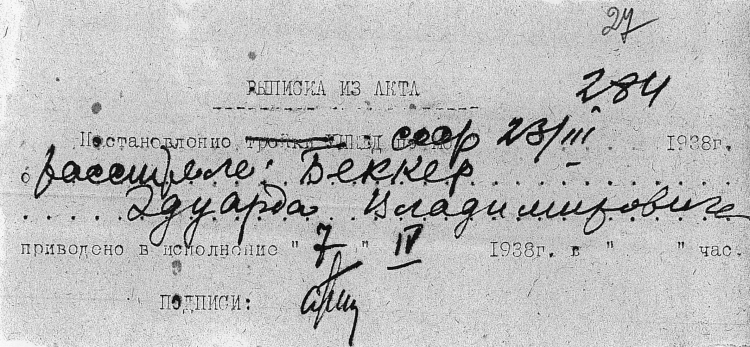 27
ВЫПИСКА ИЗ АКТА
284
Постановление тройки НКВД ссср 23/III 1938г.
о расстреле: Беккер
Эдуарда Владимировича
приводено в исполнение " 7 " IV 1938г. в " " час.
ПОДПИСИ: